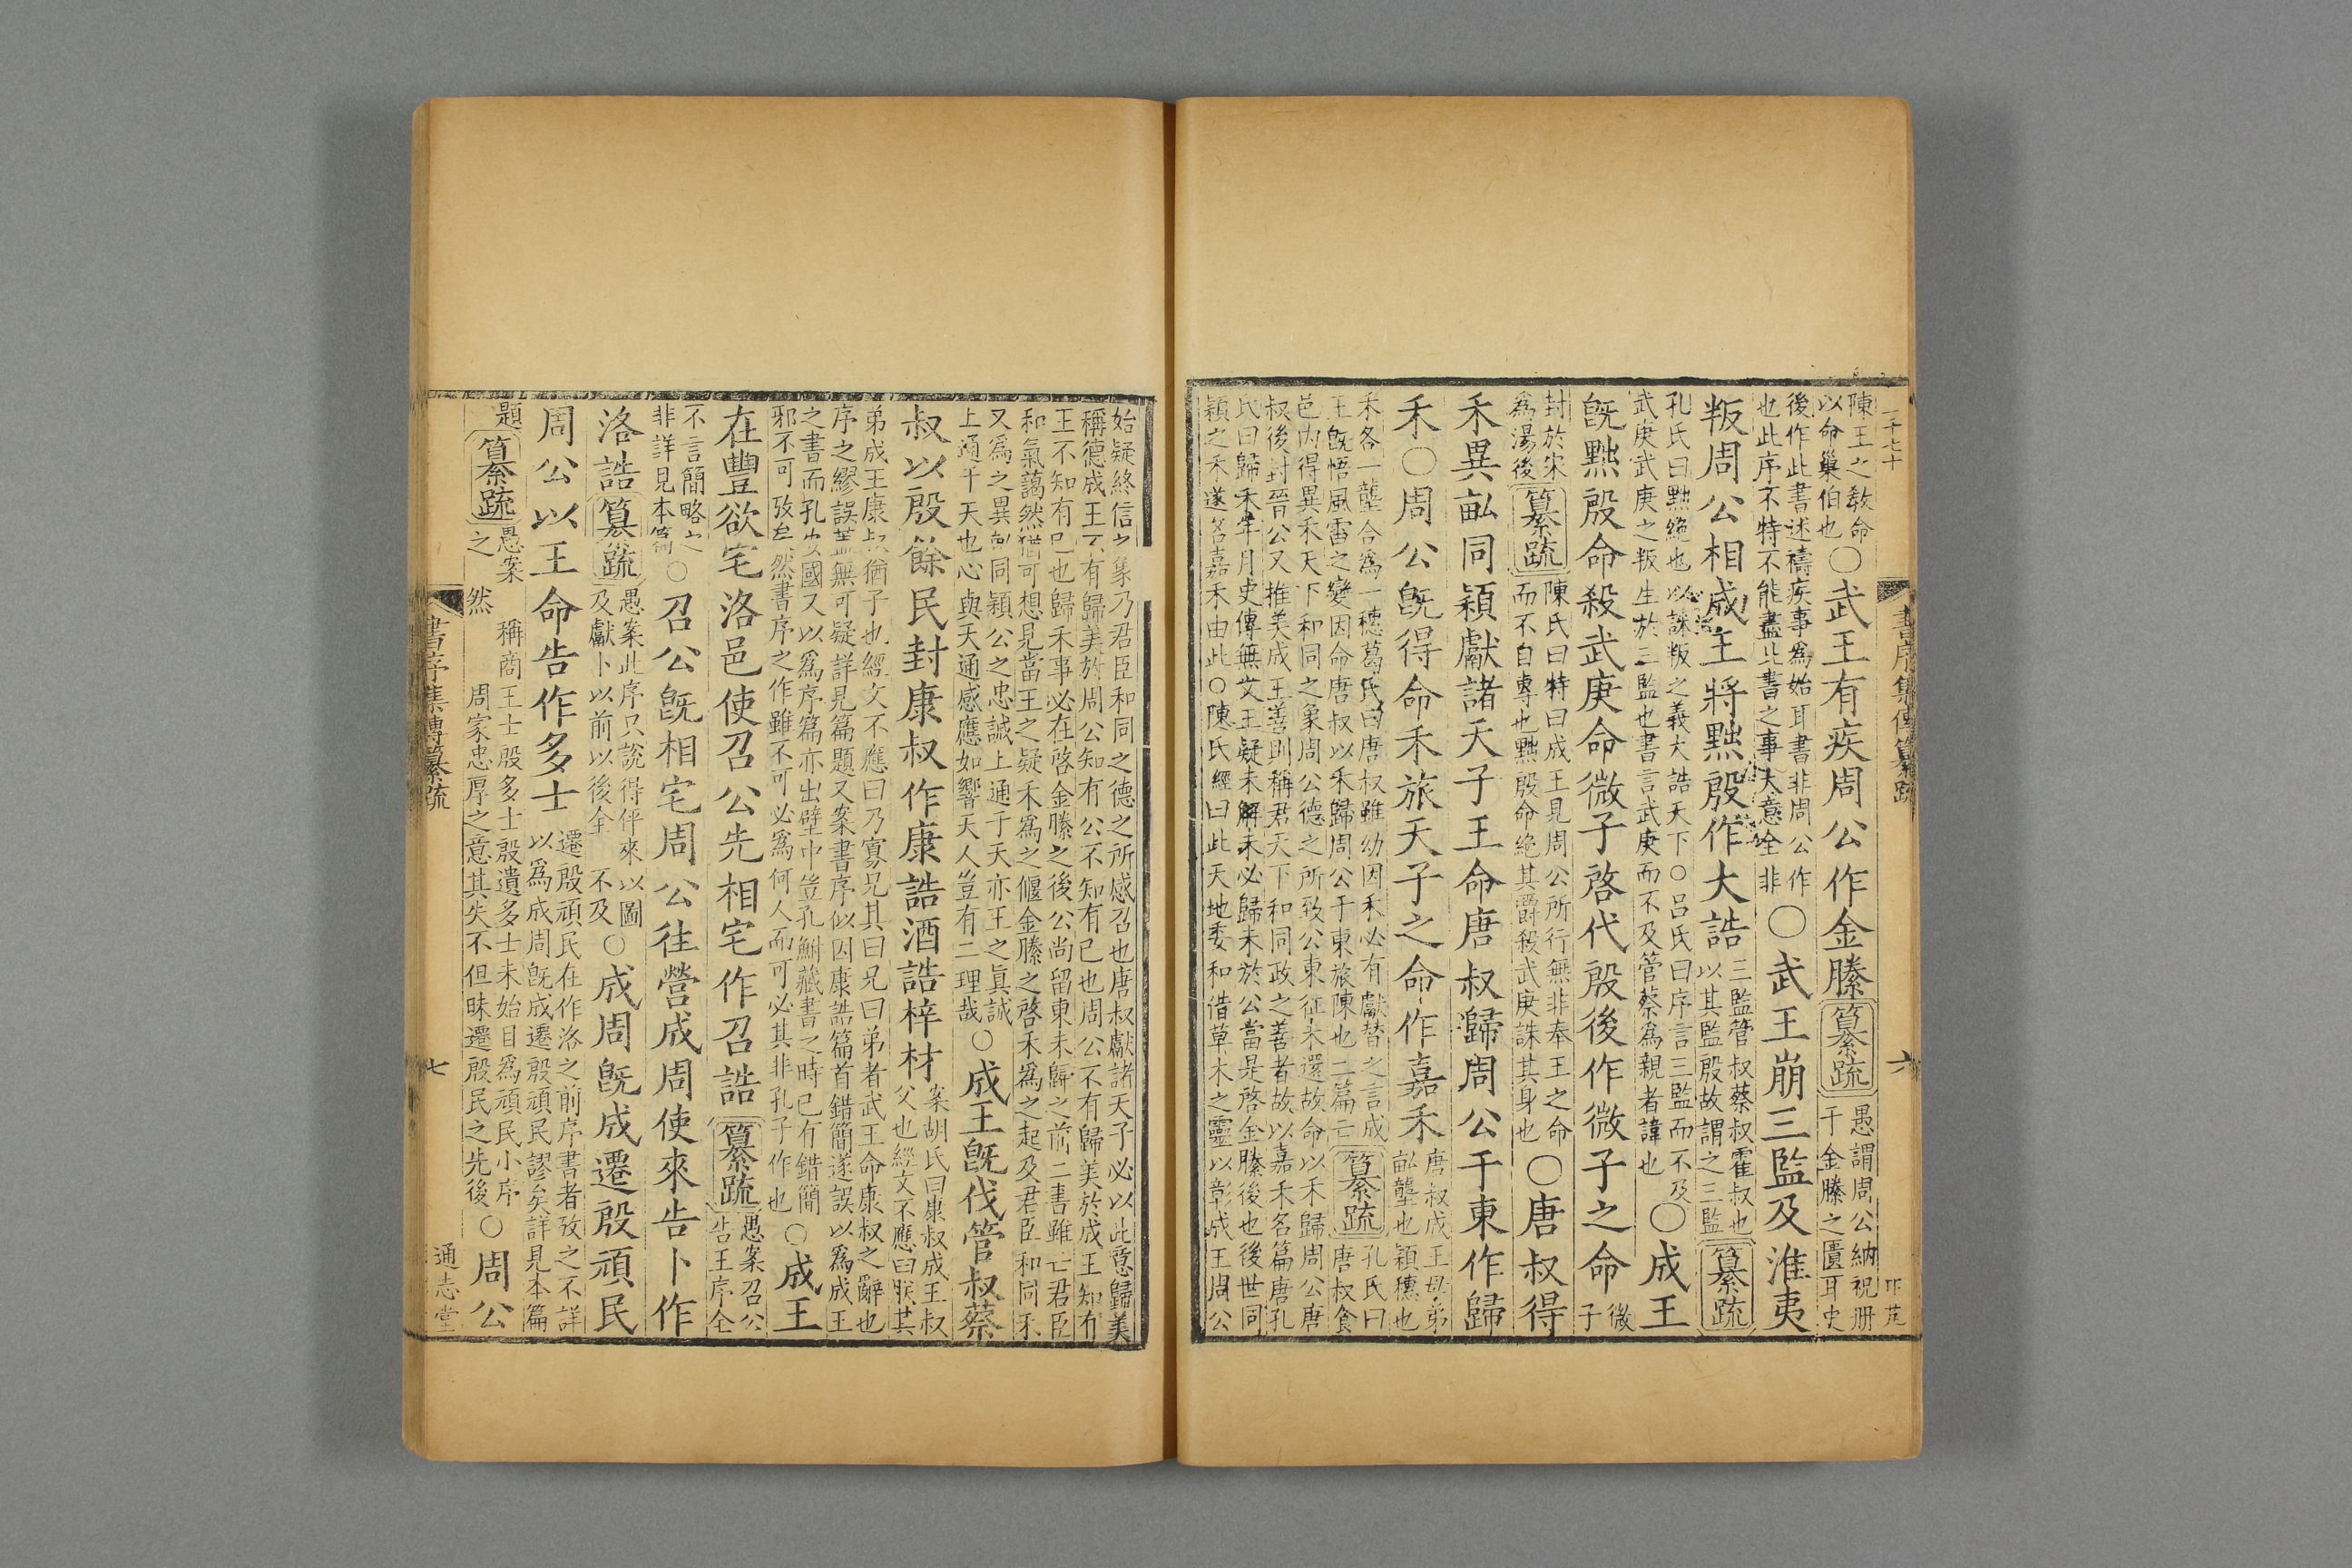 二千七十
書序集傳纂疏
六
陳王之教命
以命巢伯也
〇武王有疾周公作金縢纂疏
愚謂周公納祝册
于金縢之匱耳史
後作此書述禱疾事爲始耳書非周公作
也此序不特不能盡此書之事大意全非
〇武王崩三監及淮夷
叛周公相成王將黜殷作大誥
三監管叔蔡叔霍叔也
以其監殷故謂之三監
纂疏
孔氏曰黜絶也以誅叛之義大誥天下〇呂氏曰序言三監而不及
武庚武庚之叛生於三監也書言武庚而不及管蔡爲親者諱也
〇成王
旣黜殷命殺武庚命微子啓代殷後作微子之命
微
子
封於宋
爲湯後
纂疏
陳氏曰特曰成王見周公所行無非奉王之命
而不自專也黜殷命絶其爵殺武庚誅其身也
〇唐叔得
禾異畝同穎獻諸天子王命唐叔歸周公于東作歸
禾〇周公旣得命禾旅天子之命作嘉禾
唐叔成王母弟
畝壟也穎穗也
禾各一壟合爲一穗葛氏曰唐叔雖幼因禾必有獻替之言成
王旣悟風雷之變因命唐叔以禾歸周公于東旅陳也二篇亡
纂疏
孔氏曰
唐叔食
邑內得異禾天下和同之象周公德之所致公東征未還故命以禾歸周公唐
叔後封晉公又推美成王善則稱君天下和同政之善者故以嘉禾名篇唐孔
氏曰歸禾年月史傳無文王疑未解未必歸禾於公當是啓金縢後也後世同
穎之禾遂名嘉禾由此〇陳氏經曰此天地委和借草木之靈以彰成王周公
始疑終信之彖乃君臣和同之德之所感召也唐叔獻諸天子必以此意歸美
稱德成王不有歸美於周公知有公不知有已也周公不有歸美於成王知有
王不知有已也歸禾事必在啓金縢之後公尚留東未歸之前二書雖亡君臣
和氣藹然猶可想見當王之疑禾爲之偃金縢之啓禾爲之起及君臣和同禾
又爲之異畝同穎公之忠誠上通于天亦王之眞誠
上通于天也心與天通感應如響天人豈有二理哉
〇成王旣伐管叔蔡
叔以殷餘民封康叔作康誥酒誥梓材
案胡氏曰康叔成王叔
父也經文不應曰朕其
弟成王康叔猶子也經文不應曰乃寡兄其曰兄曰弟者武王命康叔之辭也
序之繆誤蓋無可疑詳見篇題又案書序似因康誥篇首錯簡遂誤以爲成王
之書而孔安國又以爲序篇亦出壁中豈孔鮒藏書之時已有錯簡
邪不可攷矣然書序之作雖不可必爲何人而可必其非孔子作也
〇成王
在豐欲宅洛邑使召公先相宅作召誥纂疏
愚案召公
告王序全
不言簡略之
非詳見本篇
〇召公旣相宅周公往營成周使來告卜作
洛誥纂疏
愚案此序只說得伻來以圖
及獻卜以前以後全不及
〇成周旣成遷殷頑民
周公以王命告作多士
遷殷頑民在作洛之前序書者攷之不詳
以爲成周旣成遷殷頑民謬矣詳見本篇
題
纂疏
愚案
之
稱商王士殷多士殷遺多士未始目爲頑民小序
然周家忠厚之意其失不但昧遷殷民之先後
〇周公
書序集傳纂疏
七
通志堂